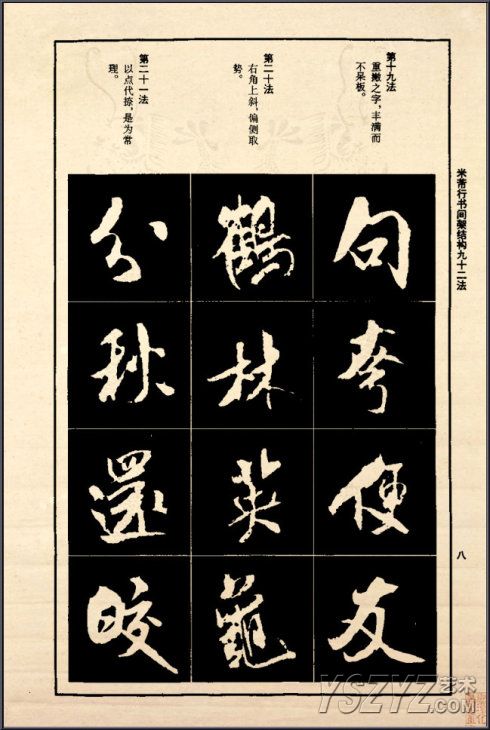 米芾行书间架结构九十二法
八
第十九法
重撇之字，丰满而
不呆板。
句夸便友
第二十法
右角上斜，偏侧取
势。
鶴林英
第二十一法
以点代捺，是为常
理。
分秋還皎
YSZYZ艺术